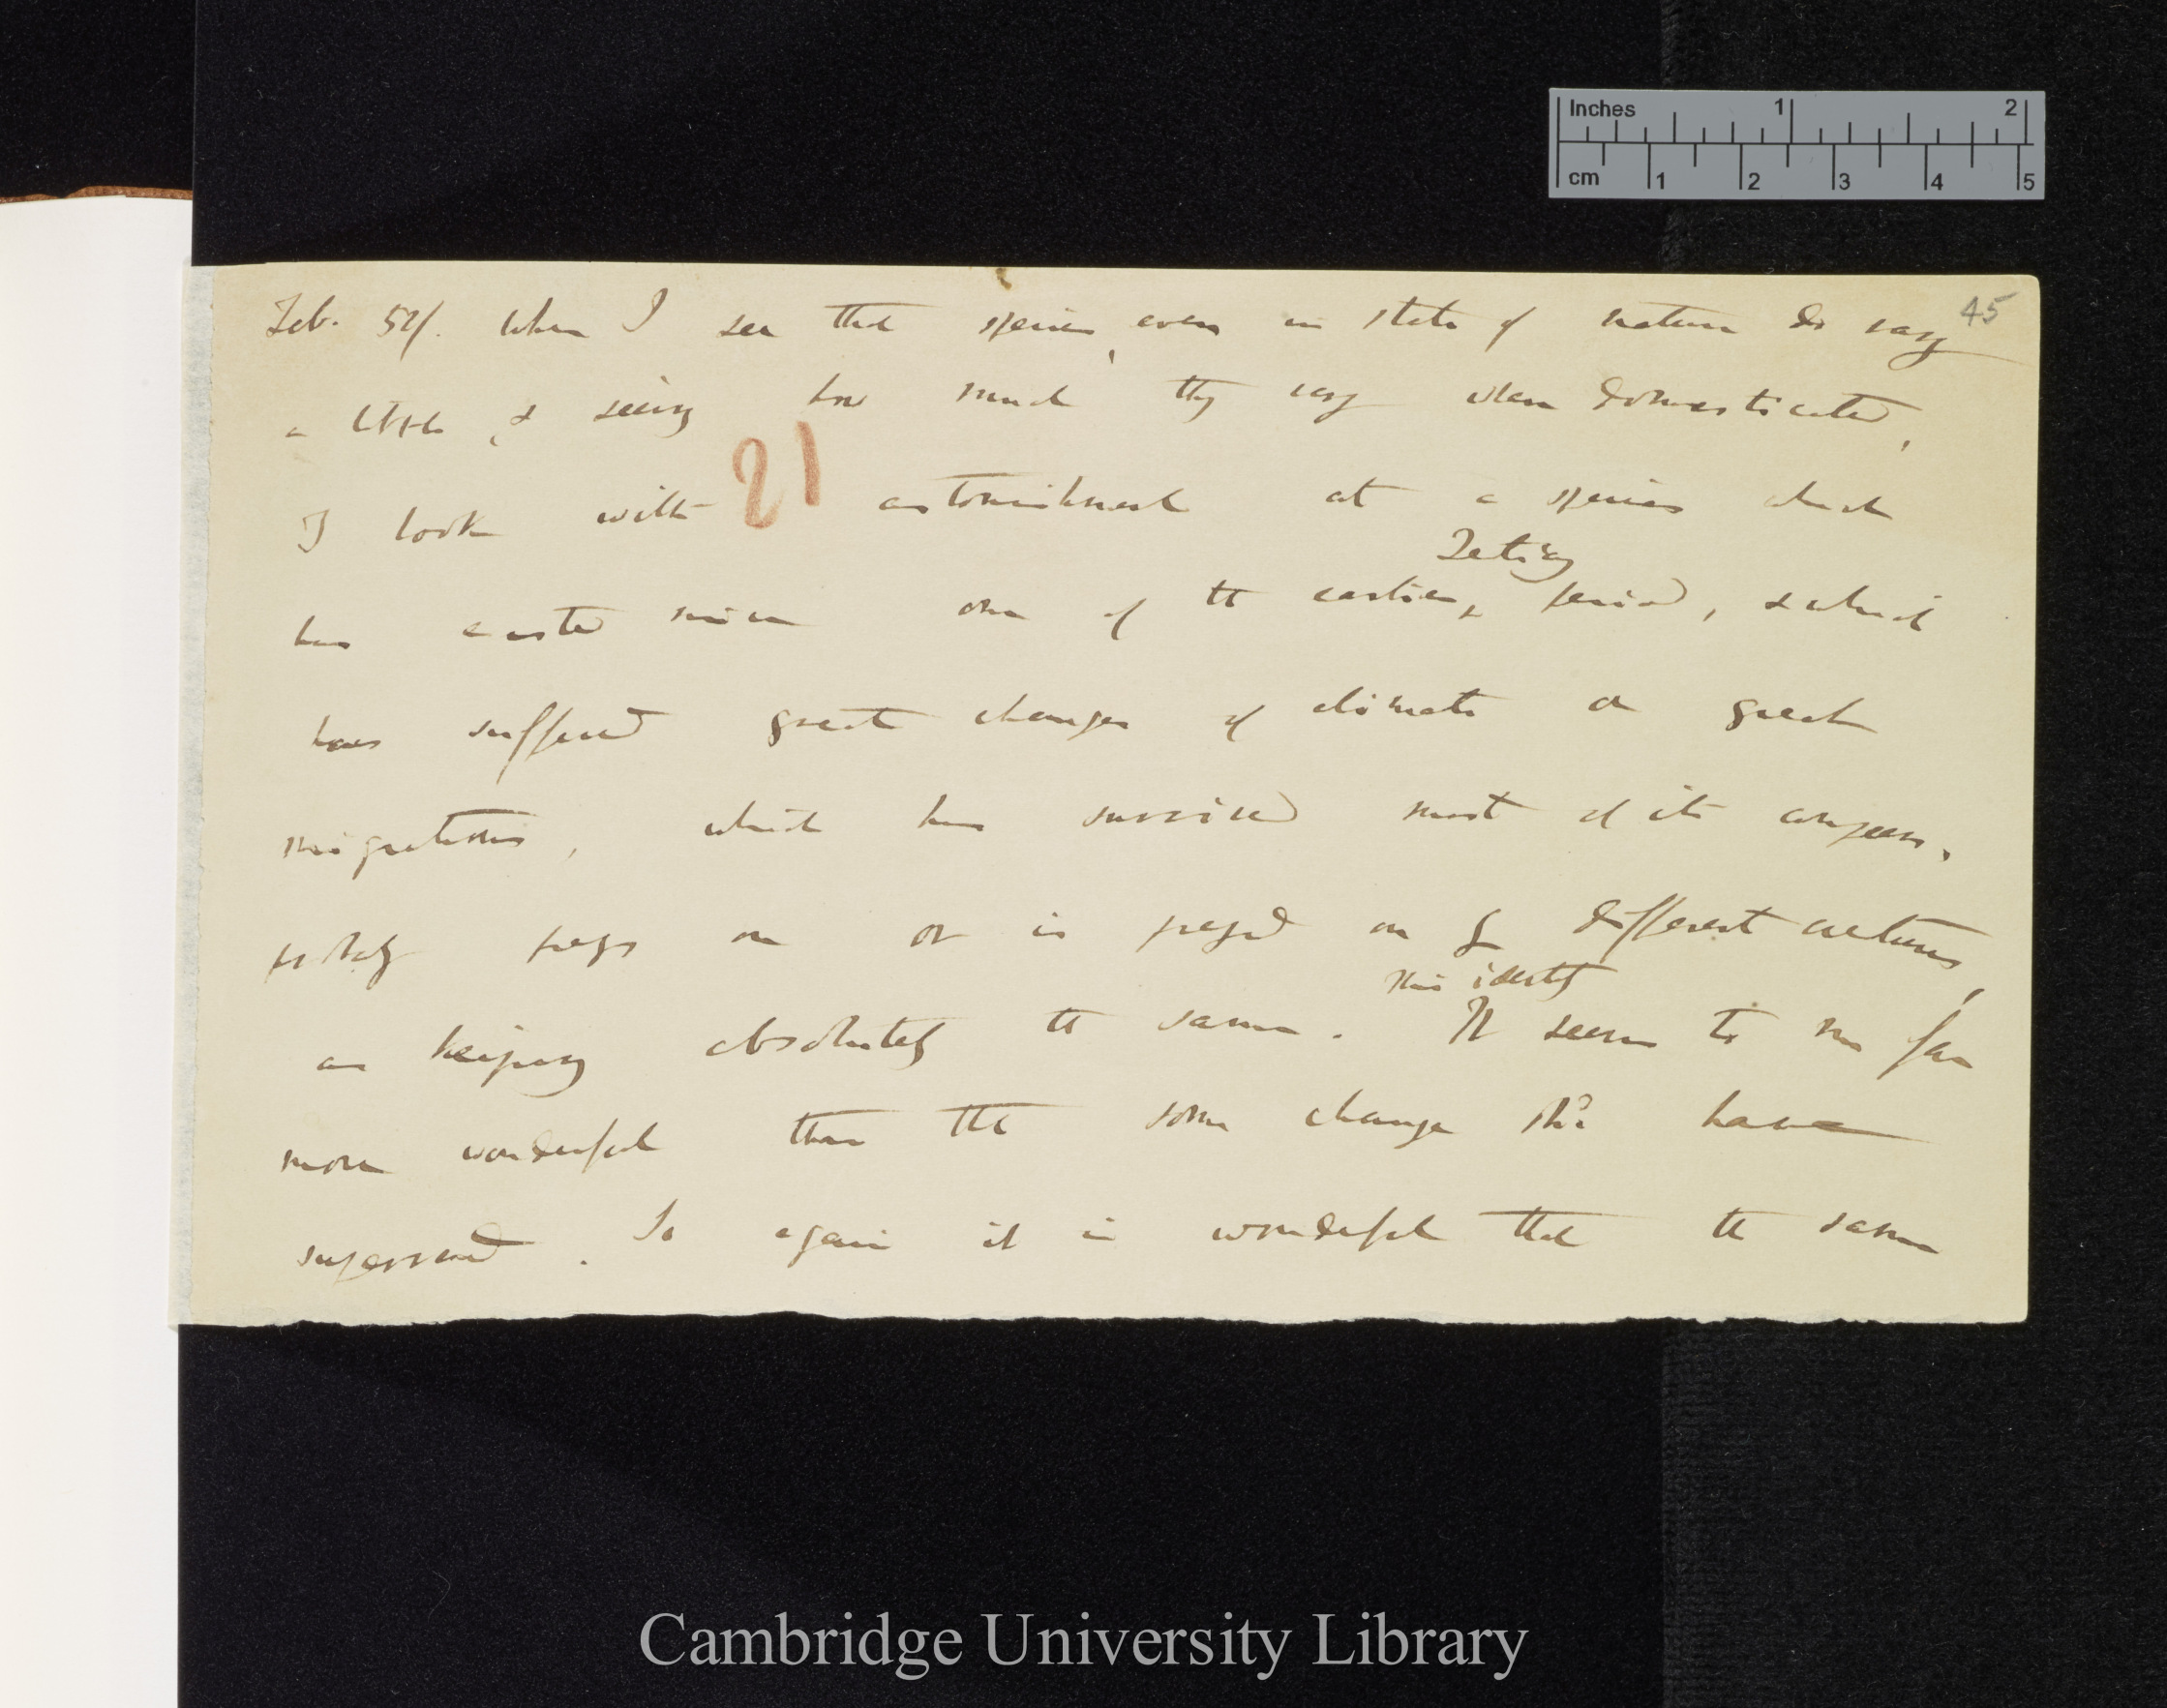 Inches 1 2
cm 1 2 3 4 5
45
Feb. 54/. When I see that species, even in state of nature do vary
a little, & seeing how much they vary when domesticated,
21
I look with astonishment at a species which
Tertiary
has existed since one of the earlier period, & which
has suffered great changes of climate or great
migrations, which has survived most of its congeners,
probably preys on or is preyed on by different creatures,
This identity
as keeping absolutely the same. It seems to me far
more wonderful than that some change shd have
supervened. So again it is wonderful that the same
Cambridge University Library